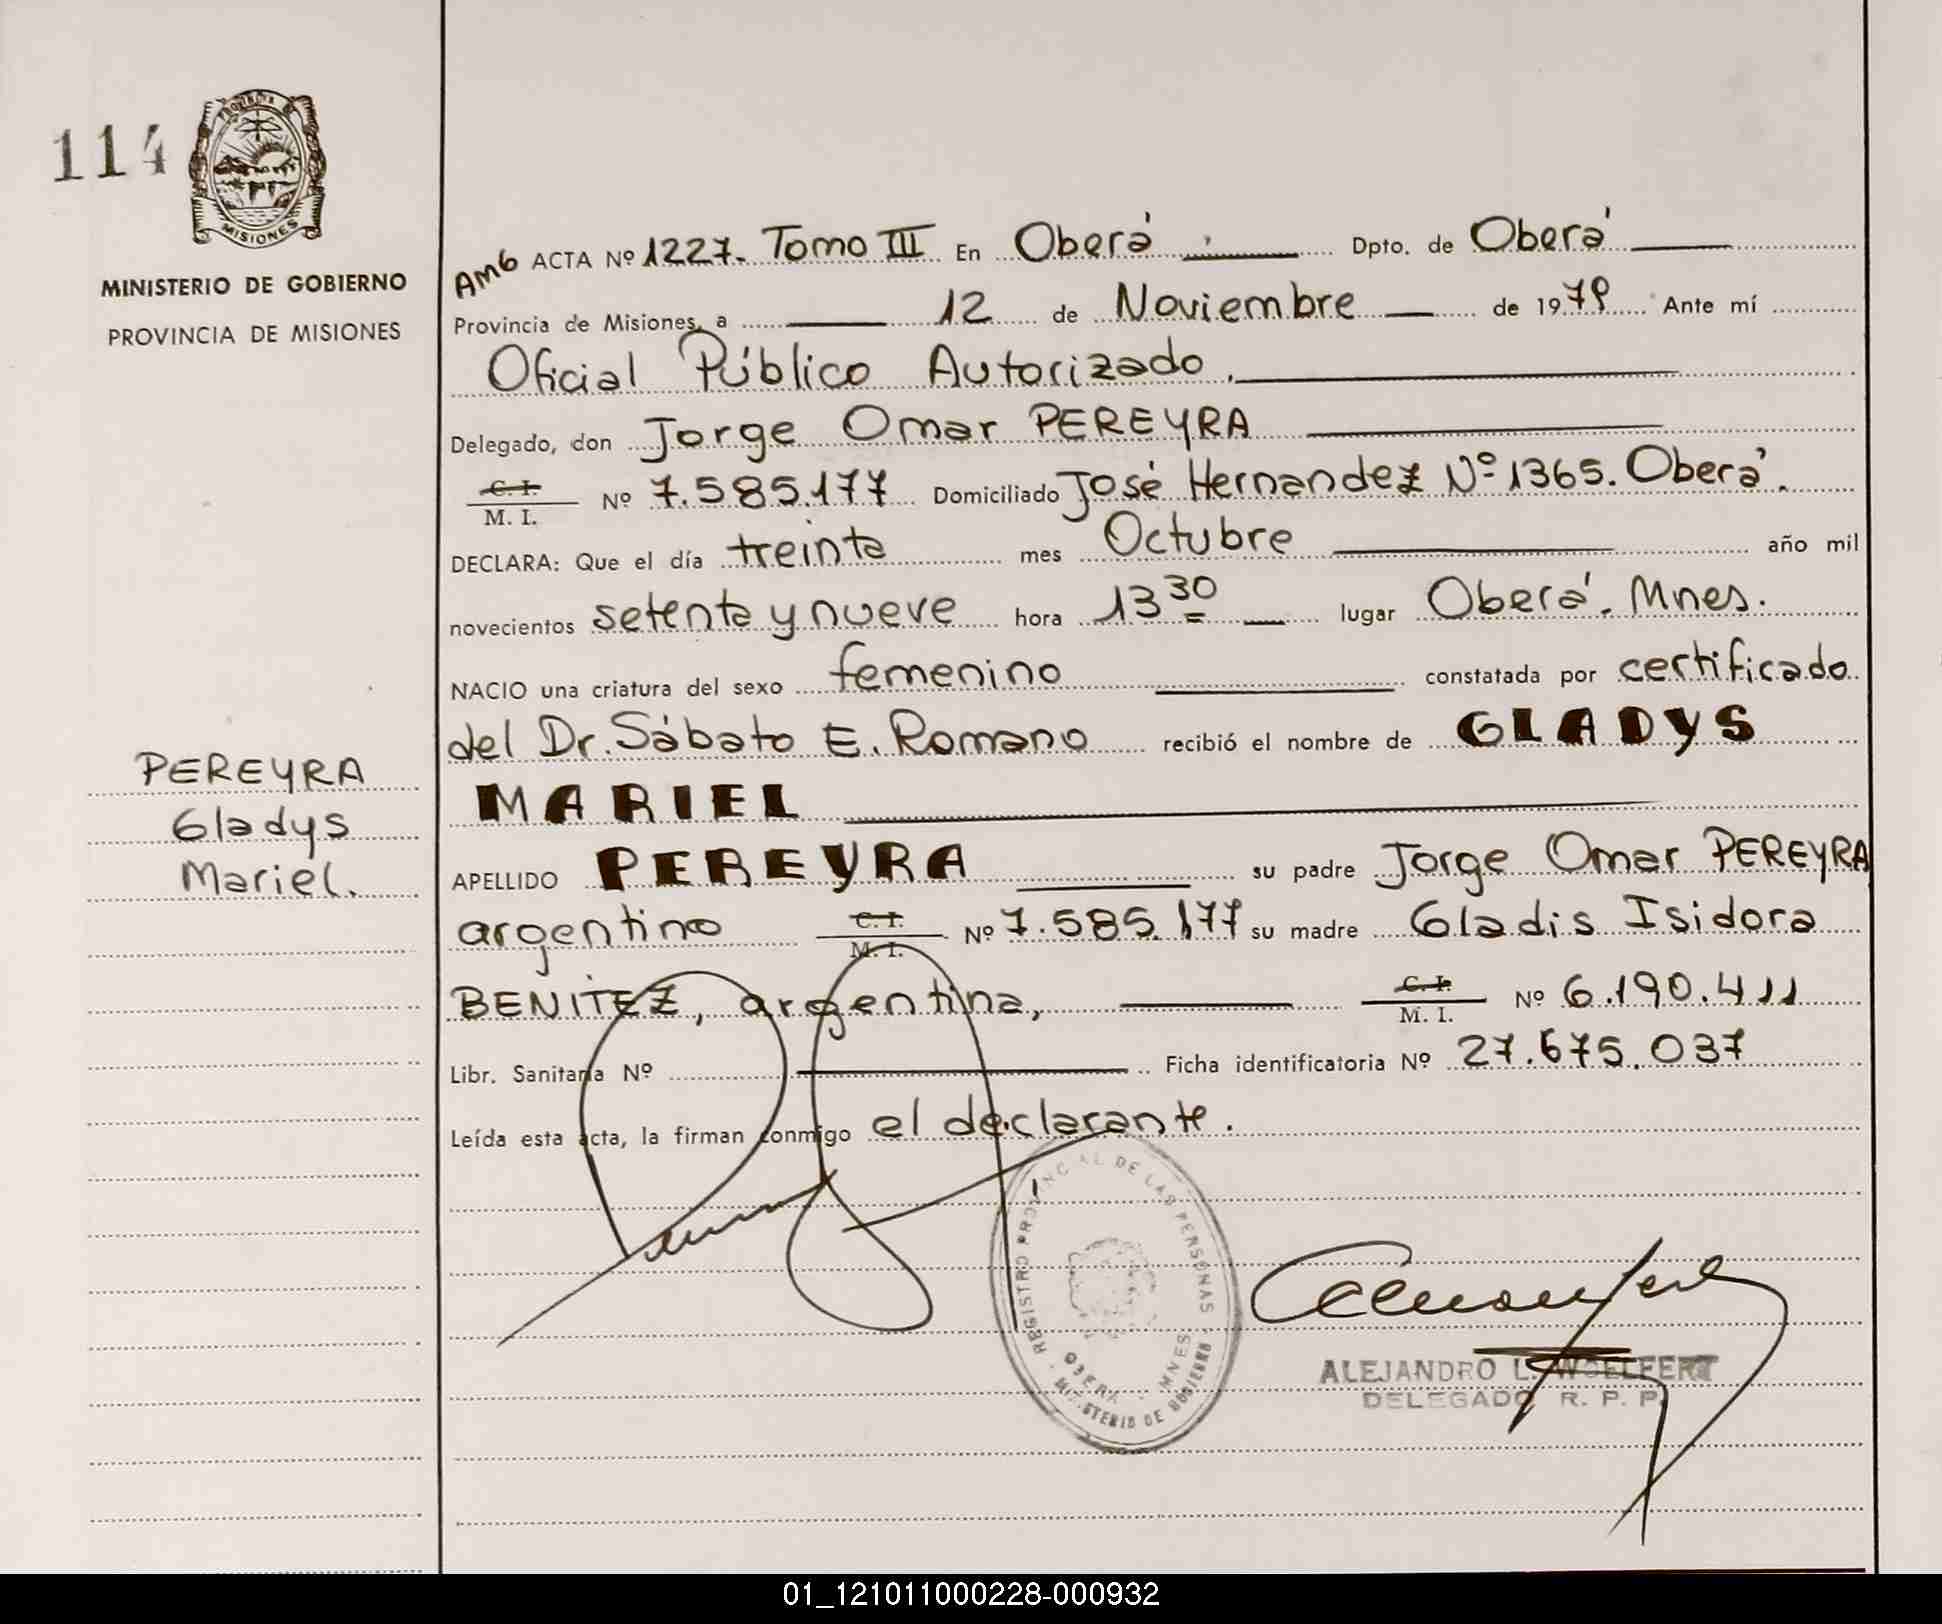 114
PROVINCIA DE
MISIONES
MINISTERIO DE GOBIERNO
PROVINCIA DE MISIONES
PEREYRA
Gladys
Mariel.
AMG ACTA Nº 1227. Tomo III En Oberá Dpto. de Oberá
Provincia de Misiones, a 12 de Noviembre de 1979 Ante mí
Oficial Público Autorizado.
Delegado, don Jorge Omar PEREYRA
C. I.
M. I. Nº 7.585.177 Domiciliado José Hernandez Nº 1365. Oberá.
DECLARA: Que el día treinta mes Octubre año mil
novecientos setenta y nueve hora 13 30 lugar Oberá. Mnes.
NACIO una criatura del sexo femenino constatada por certificado
del Dr. Sábato E. Romano recibió el nombre de GLADYS
MARIEL
APELLIDO PEREYRA su padre Jorge Omar PEREYRA
argentino C. I.
M. I. Nº 7.585.177 su madre Gladis Isidora
BENITEZ, argentina, C. I.
M. I. Nº 6.190.411
Libr. Sanitaria Nº Ficha identificatoria Nº 27.675.037
Leída esta acta, la firman conmigo el declarante.
REGISTRO PROVINCIAL DE LAS PERSONAS
OBERA - MNES
MINISTERIO DE GOBIERNO
ALEJANDRO L. WOELFERT
DELEGADO R. P. P.
01_121011000228-000932